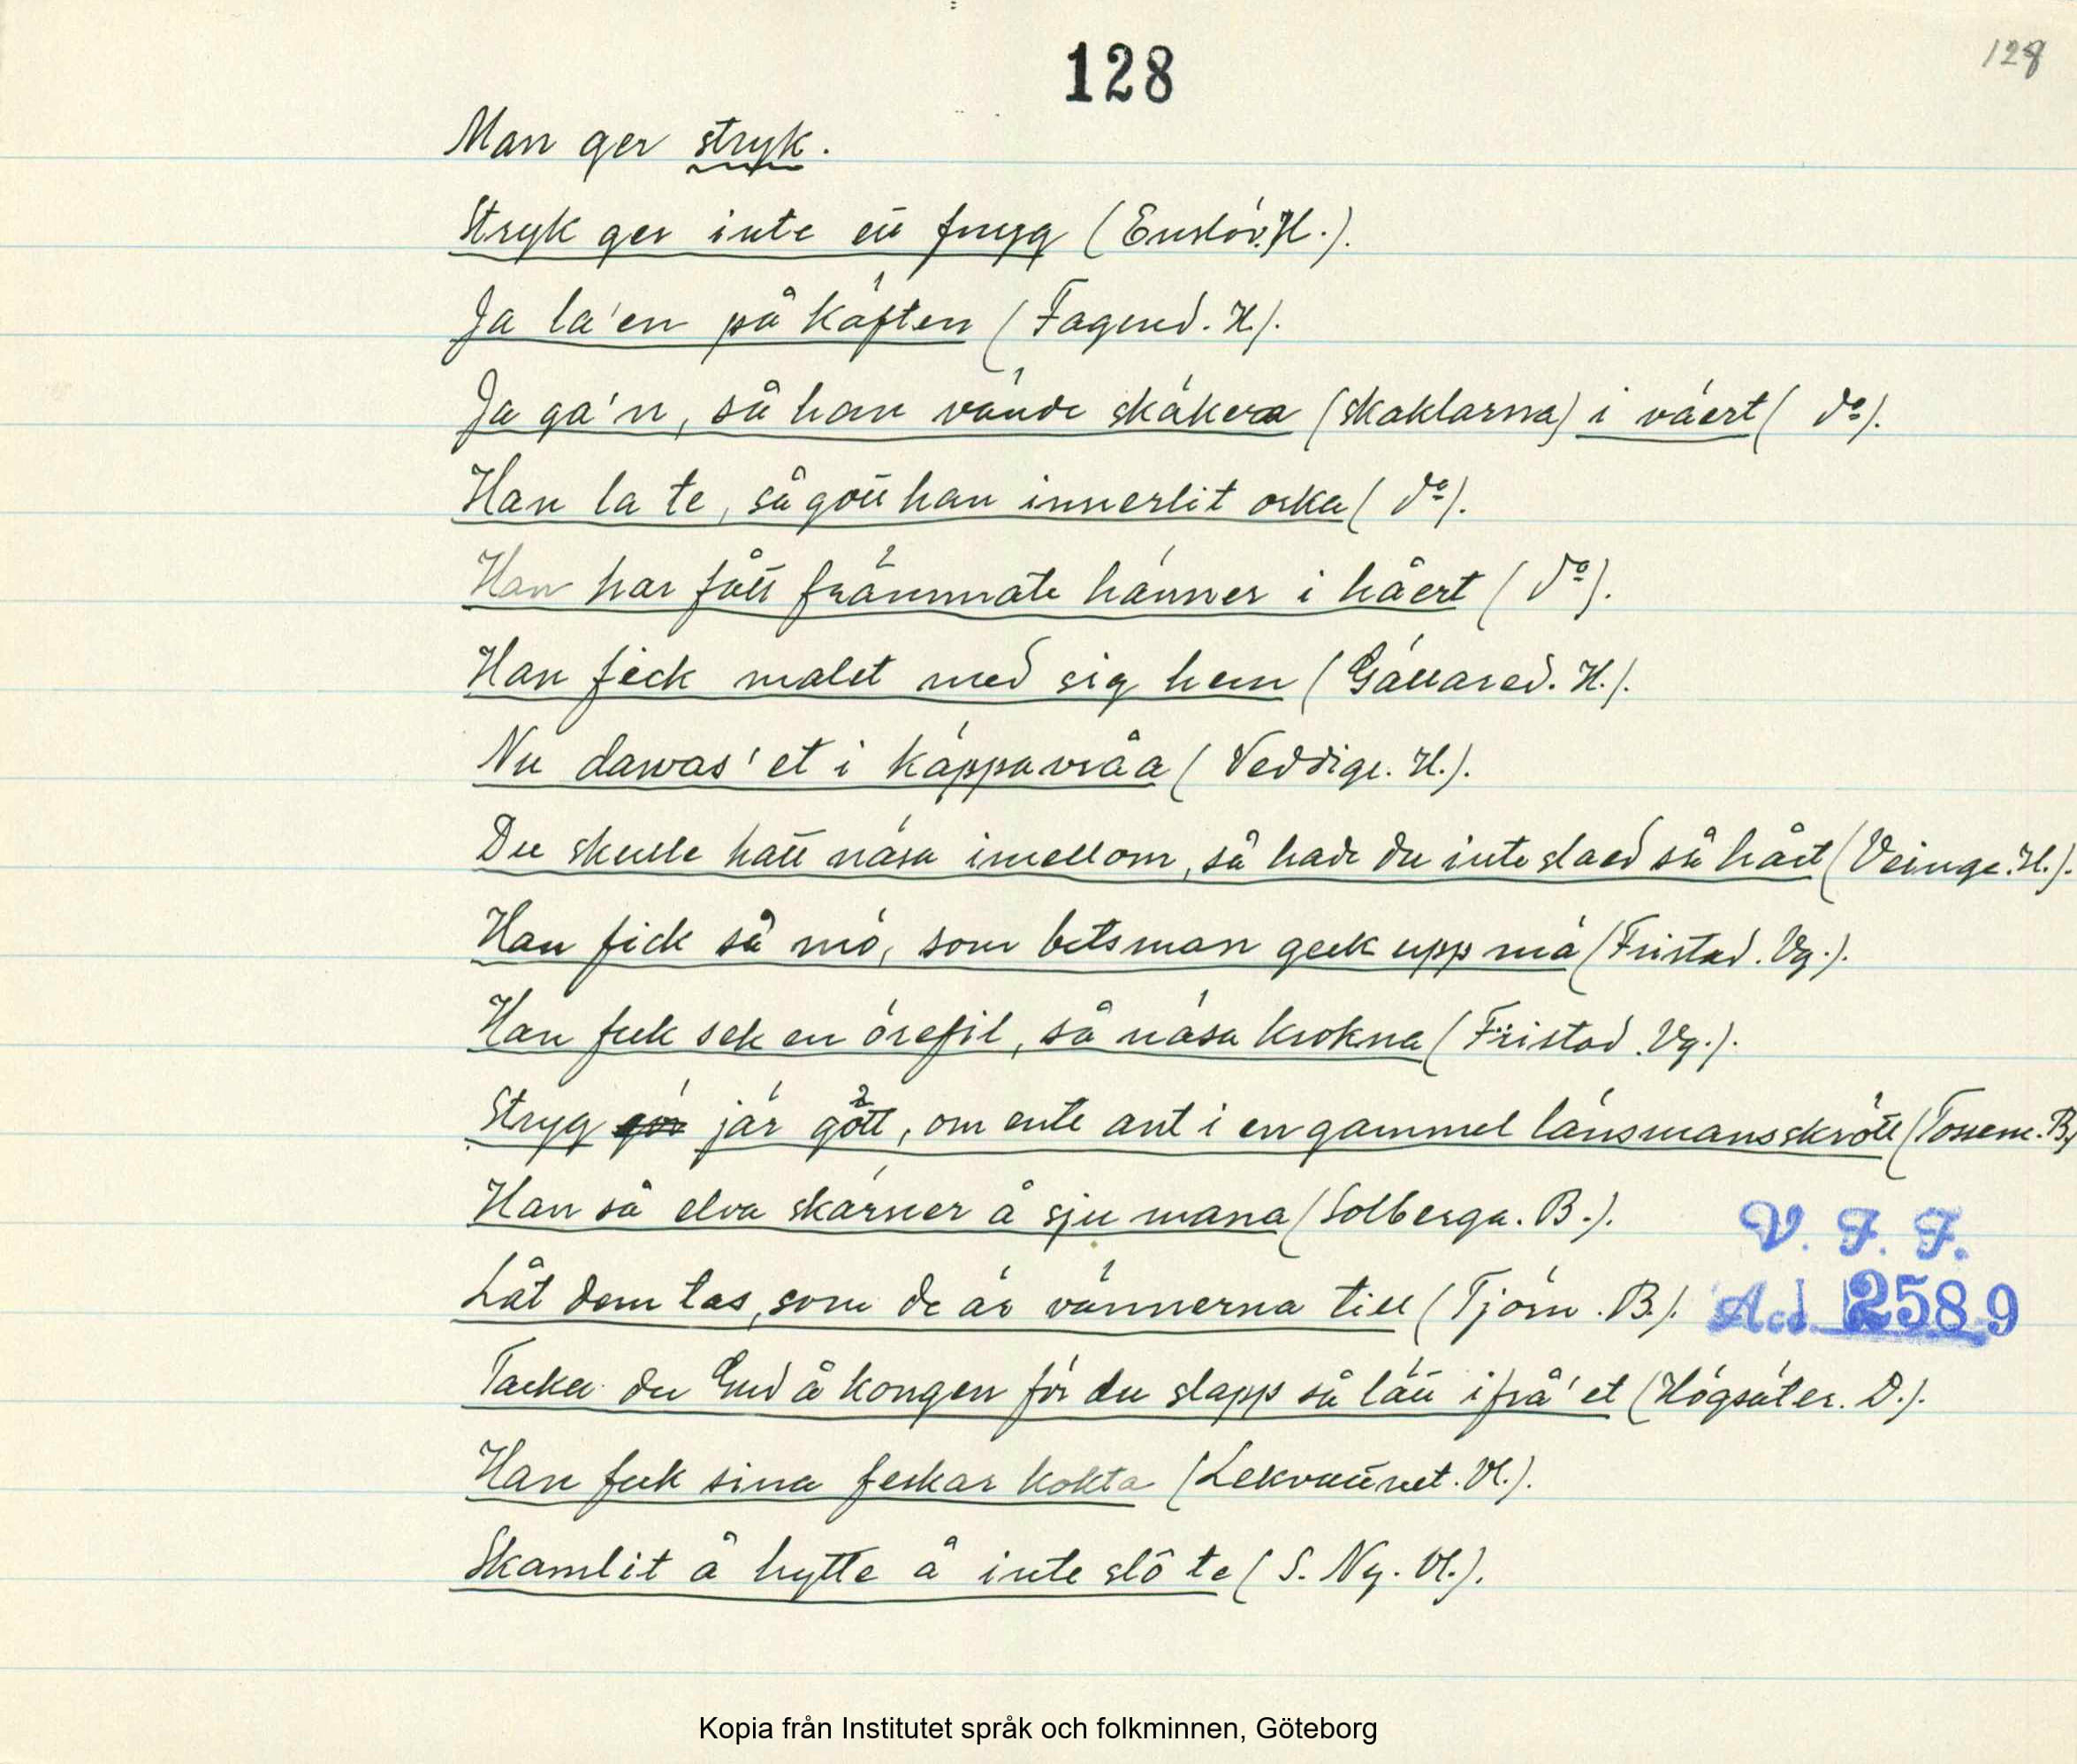 128
128
Man ger stryk.
Stryk ger inte ett frugg (Enslöv. H.).
Ja la'en på käften (Fagered. H.).
Ja ga'n, så han vände skäkera (skaklarna) i väert (do).
Han la te, så gott han innerlit orka (do).
Han har fått främmate hänner i håert (do).
Han feck malet med sig hem (Gällared. H.).
Nu dawas'et i käppavråa (Veddige. H.).
Du skulle hatt näsa imellom, så hade du inte slaed så hårt (Veinge. H.).
Han fick så mö, som betsman geck upp mä (Fristad. Vg.).
Han feck sek en örefil, så näsa krokna (Fristad. Vg.).
Stryg gör jär gött, om ente ant i en gammel länsmansskrött (Tossene. B.)
Han så elva skärner å sju mana (Solberga. B.).
V. F. F.
Låt dem tas, som de är vännerna till (Tjörn. B.).
Acc. 2589
Tacka du Gud å kongen för du slapp så lätt ifrå'et (Högsäter. D.).
Han feck sina feskar kokta (Lekvattnet. Vl.).
Skamlit å hytte å inte slô te (S. Ny. Vl.).
Kopia från Institutet språk och folkminnen, Göteborg